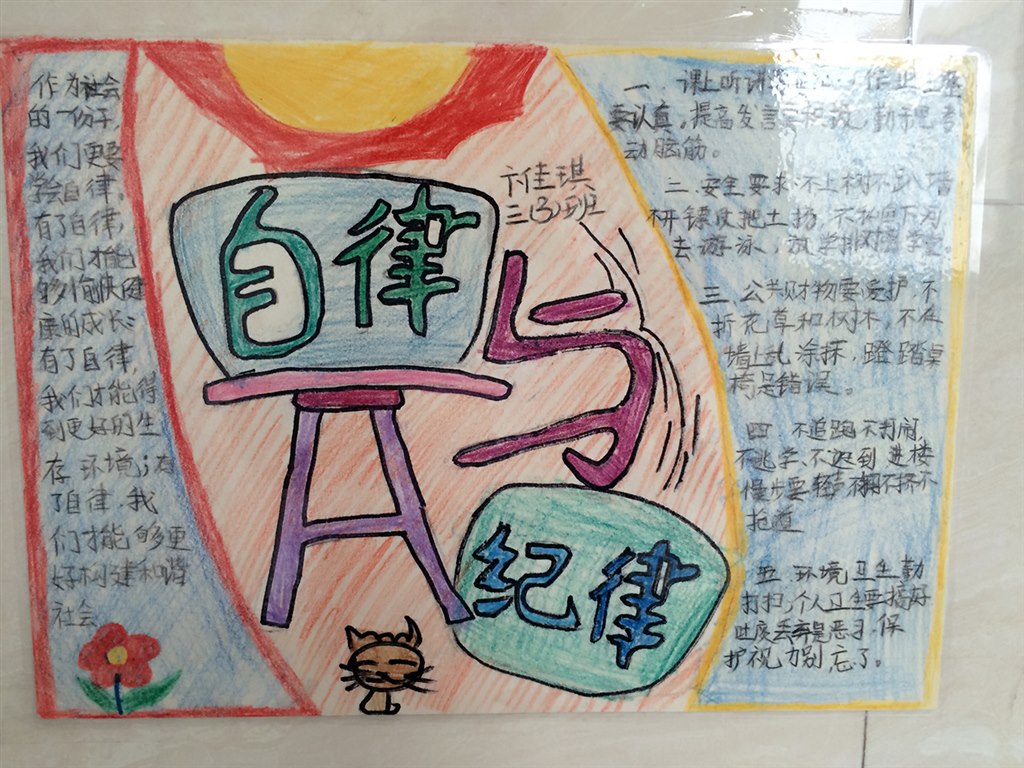 作为社会
的一份子,
我们更要
学会自律。
有了自律,
我们才能
够愉快健
康的成长;
有了自律,
我们才能得
到更好的生
存环境;有
了自律,我
们才能够更
好构建和谐
社会
自律
与
纪律
佳琪
三(3)班
一、课上听讲 作业
要认真,提高发言 积极,勤思考
动脑筋。
二、安全要求不上树不趴墙
不研 仗把土扬,不 下河
去游泳,放学排好
三、公共财物要爱护,不
折花草和树木,不在
墙上乱涂抹,蹬踏桌
椅是错误。
四、不追跑不打闹,
不逃学、不迟到进楼
慢步要轻声不拥不挤不
抢道
五、环境卫生勤
打扫,个人卫生要搞好
吐痰丢弃是恶习,保
护视力别忘了。